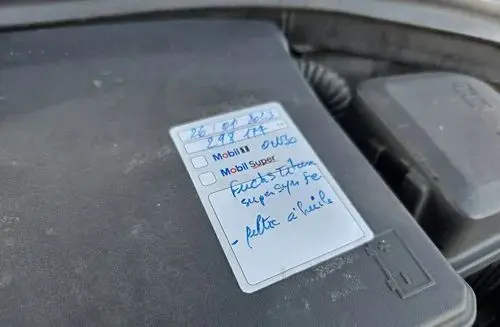 26 01 2023
298 177
Mobil 1 0W30
Mobil Super
Fuchs titan
supersyn Fe
- filtre à huile